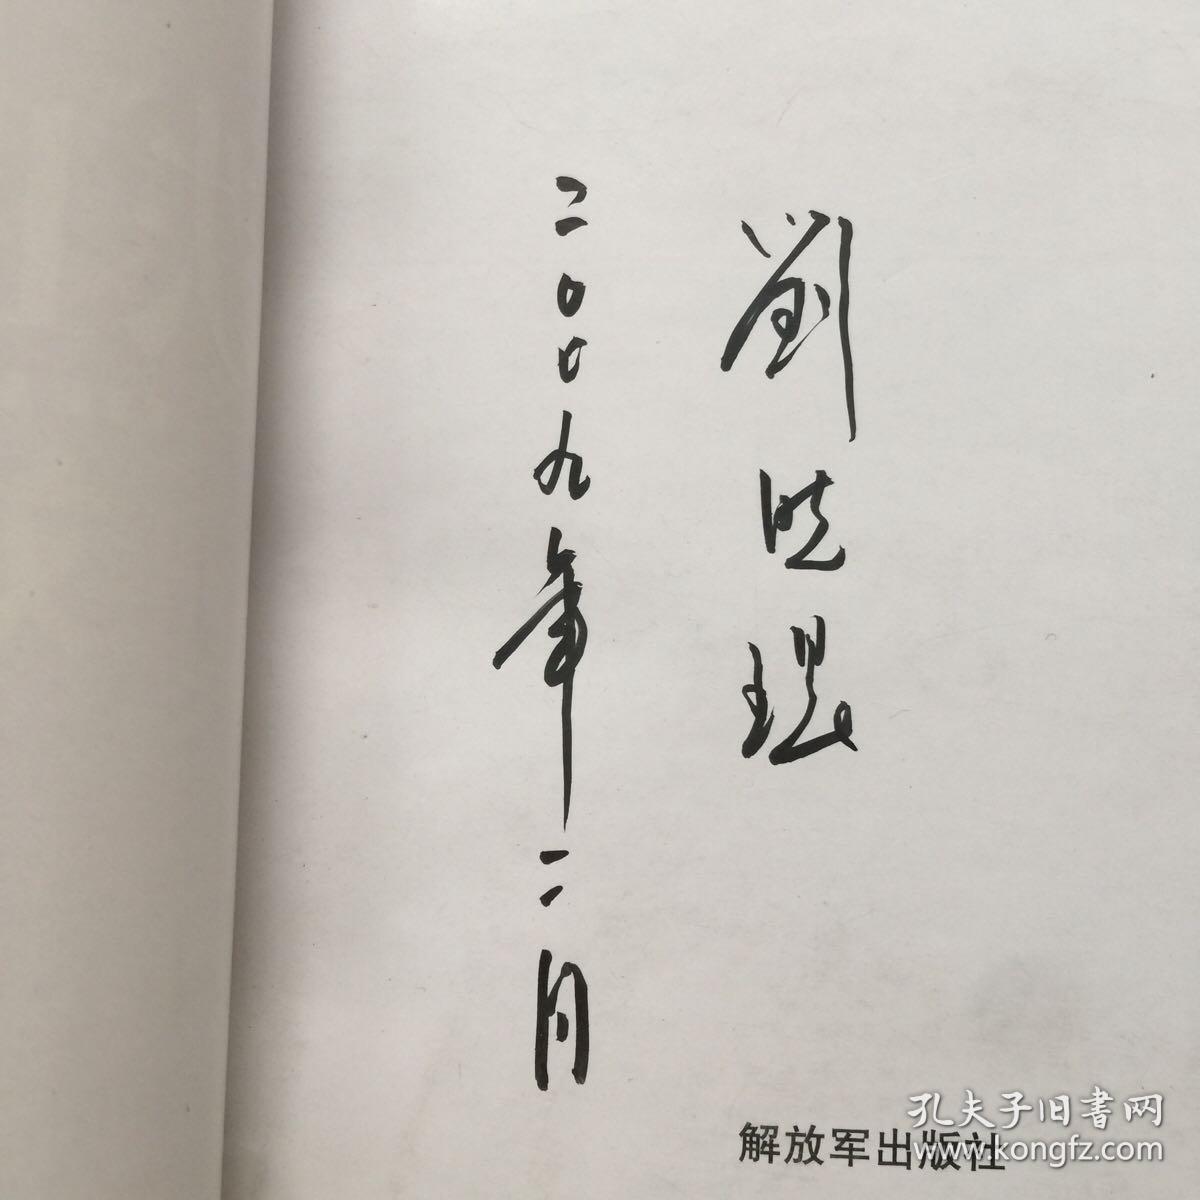 劉晓琨
二〇〇九年二月
解放军出版社
孔夫子旧书网
www.kongfz.com